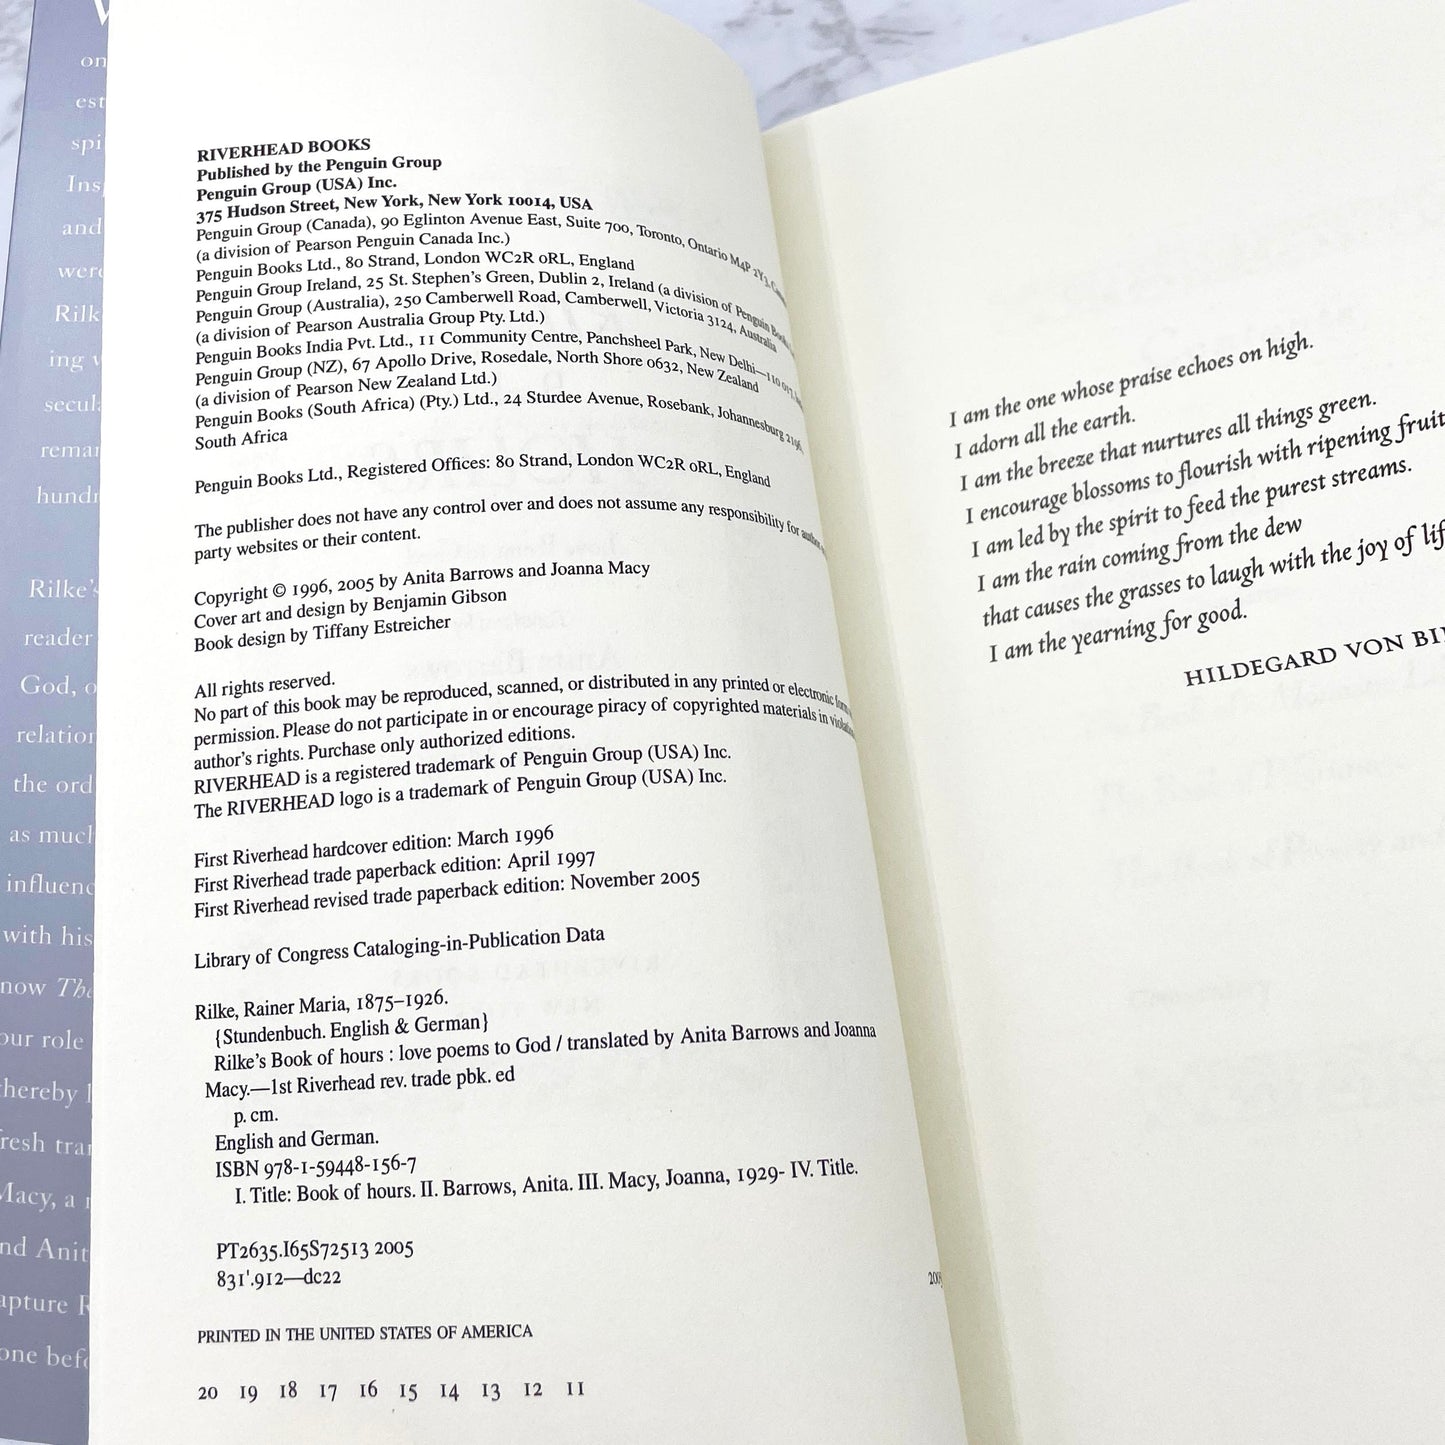 on
est
spi
Ins
and
were
Rilk
ing
secul
remar
hundr
Rilke's
reader
God, o
relation
the ord
as much
influenc
with his
now The
our role
thereby
fresh tran
Macy, a
nd Anit
apture R
one befo
RIVERHEAD BOOKS
Published by the Penguin Group
Penguin Group (USA) Inc.
375 Hudson Street, New York, New York 10014, USA
Penguin Group (Canada), 90 Eglinton Avenue East, Suite 700, Toronto, Ontario M4P 2Y3,
(a division of Pearson Penguin Canada Inc.)
Penguin Books Ltd., 80 Strand, London WC2R 0RL, England
Penguin Group Ireland, 25 St. Stephen's Green, Dublin 2, Ireland (a division of Penguin Books
Penguin Group (Australia), 250 Camberwell Road, Camberwell, Victoria 3124, Australia
(a division of Pearson Australia Group Pty. Ltd.)
Penguin Books India Pvt. Ltd., 11 Community Centre, Panchsheel Park, New Delhi—110 017,
Penguin Group (NZ), 67 Apollo Drive, Rosedale, North Shore 0632, New Zealand
(a division of Pearson New Zealand Ltd.)
Penguin Books (South Africa) (Pty.) Ltd., 24 Sturdee Avenue, Rosebank, Johannesburg 2196,
South Africa
Penguin Books Ltd., Registered Offices: 80 Strand, London WC2R 0RL, England
The publisher does not have any control over and does not assume any responsibility for author
party websites or their content.
Copyright © 1996, 2005 by Anita Barrows and Joanna Macy
Cover art and design by Benjamin Gibson
Book design by Tiffany Estreicher
All rights reserved.
No part of this book may be reproduced, scanned, or distributed in any printed or electronic form
permission. Please do not participate in or encourage piracy of copyrighted materials in violation
author's rights. Purchase only authorized editions.
RIVERHEAD is a registered trademark of Penguin Group (USA) Inc.
The RIVERHEAD logo is a trademark of Penguin Group (USA) Inc.
First Riverhead hardcover edition: March 1996
First Riverhead trade paperback edition: April 1997
First Riverhead revised trade paperback edition: November 2005
Library of Congress Cataloging-in-Publication Data
Rilke, Rainer Maria, 1875–1926.
{Stundenbuch. English & German}
Rilke's Book of hours : love poems to God / translated by Anita Barrows and Joanna
Macy.—1st Riverhead rev. trade pbk. ed
p. cm.
English and German.
ISBN 978-1-59448-156-7
I. Title: Book of hours. II. Barrows, Anita. III. Macy, Joanna, 1929- IV. Title.
PT2635.I65S72513 2005
831'.912—dc22
PRINTED IN THE UNITED STATES OF AMERICA
20 19 18 17 16 15 14 13 12 11
I am the one whose praise echoes on high.
I adorn all the earth.
I am the breeze that nurtures all things green.
I encourage blossoms to flourish with ripening fruit
I am led by the spirit to feed the purest streams.
I am the rain coming from the dew
that causes the grasses to laugh with the joy of lif
I am the yearning for good.
HILDEGARD VON BI